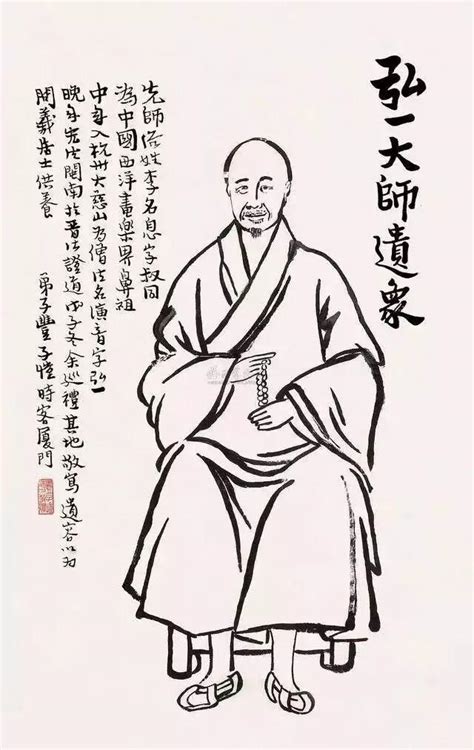 弘一大師遺象
先師俗姓李名息字叔同
為中國西洋畫樂界鼻祖
中年入杭州大慈山为僧法名演音字弘一
晚年閩南於晉江證道戊子冬余巡禮其地敬寫遺容以为
義居士供養
弟子豐子愷時客廈門